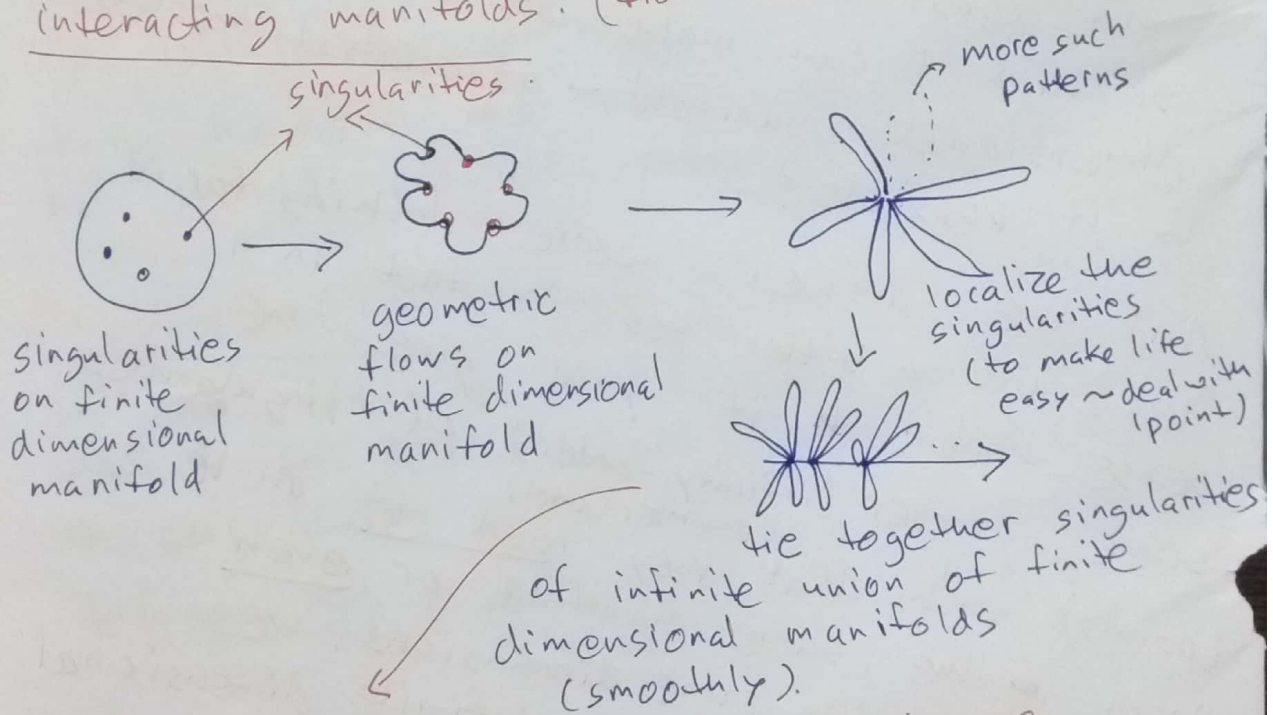 interacting manifolds. (
singularities
more such
patterns
singularities
on finite
dimensional
manifold
geometric
flows on
finite dimensional
manifold
localize the
singularities
(to make life
easy ~ deal with
1point)
...
tie together singularities
of infinite union of finite
dimensional manifolds
(smoothly).